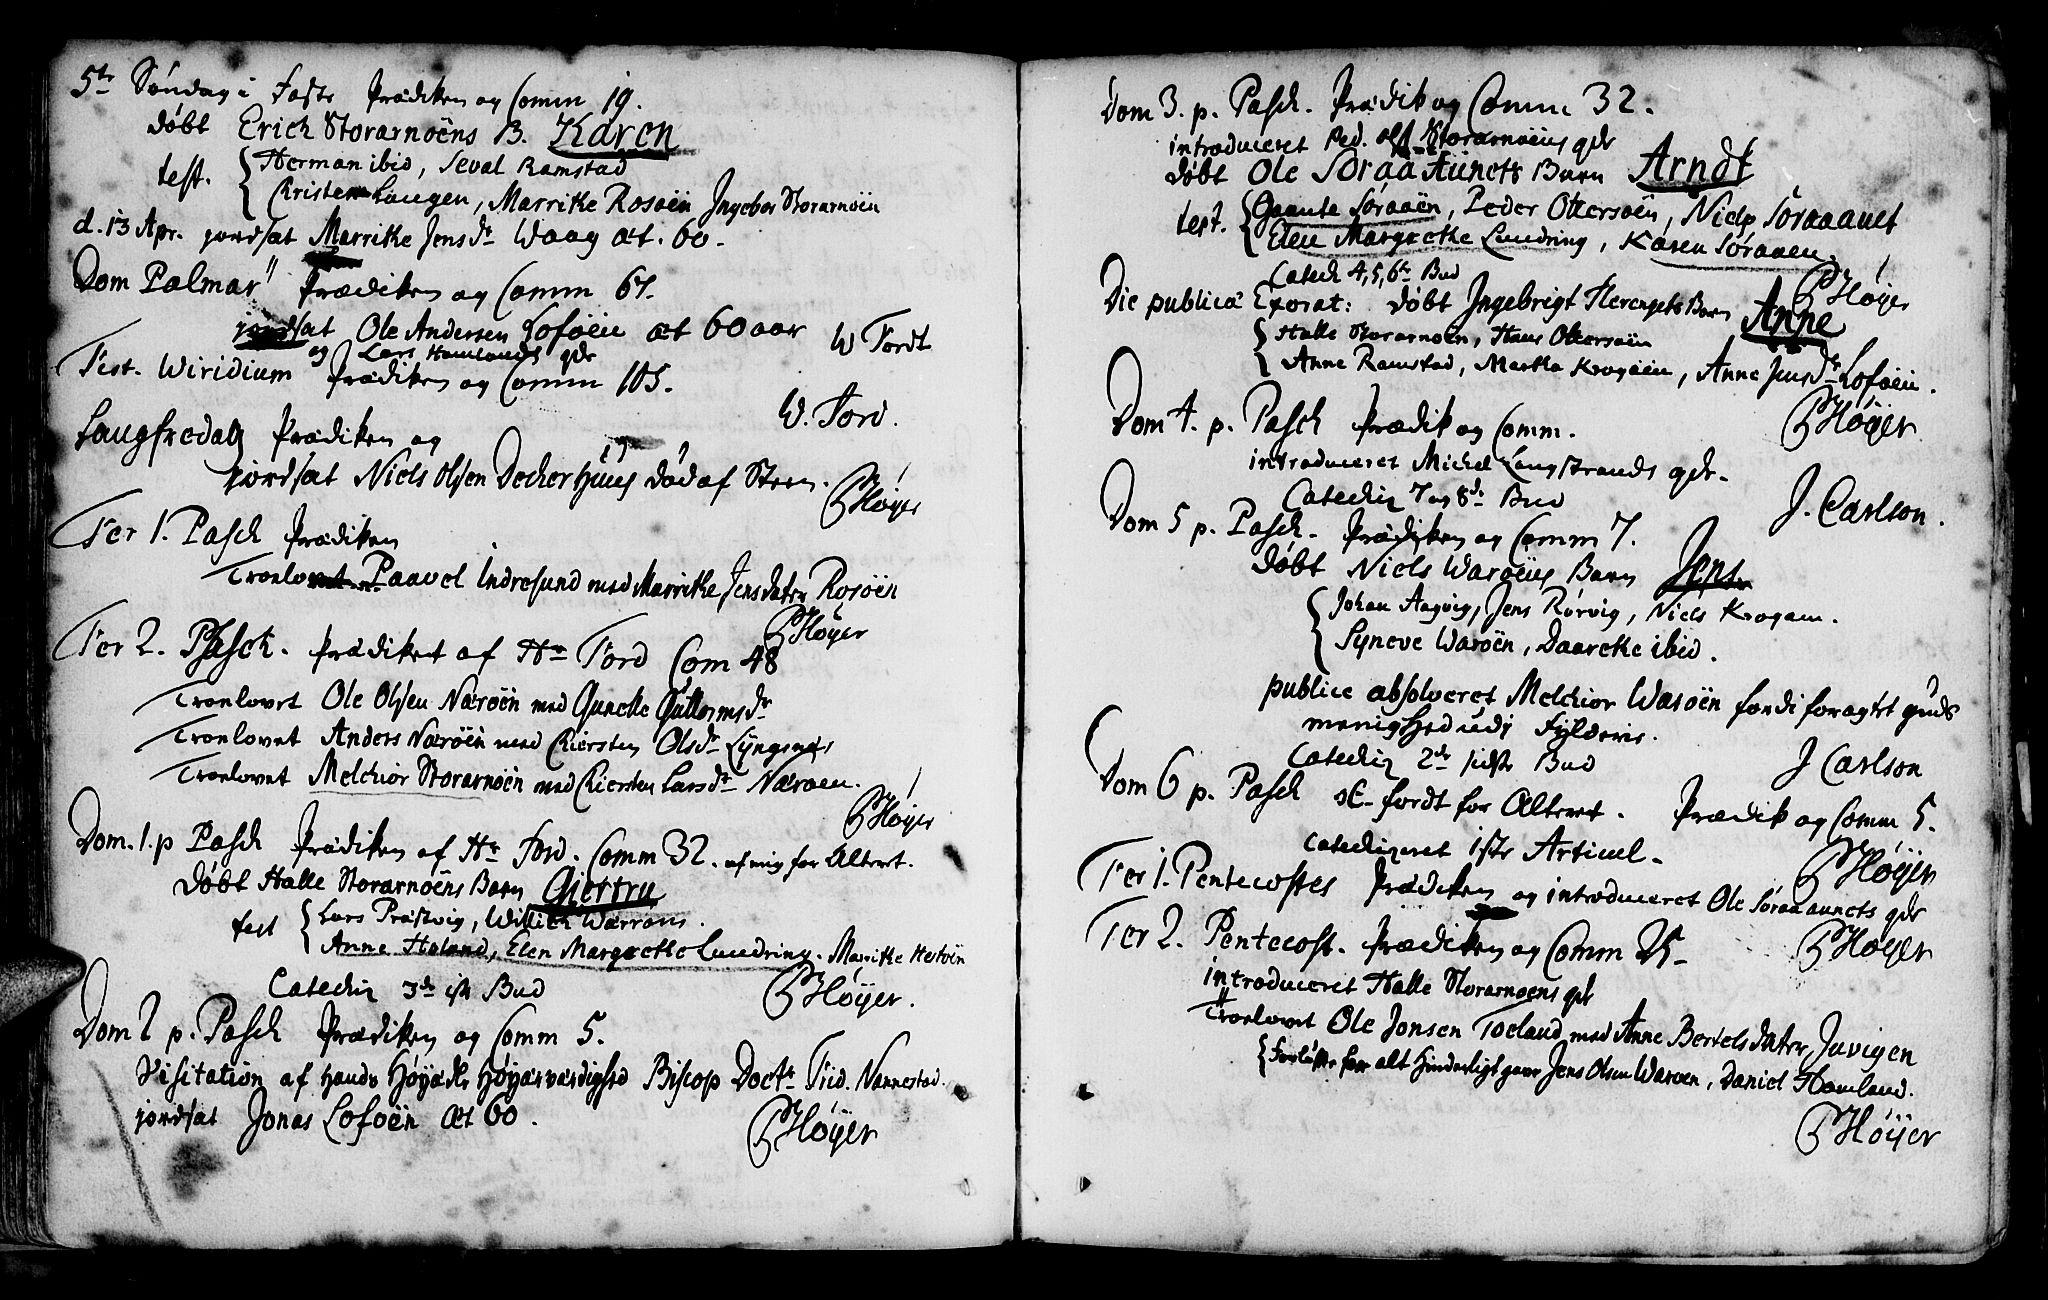 5te Søndag i Faste Prædiken og Comm 19.
døbt Erich Storarnöens B. Karen
test. Herman ibid, Seval Ramstad
Kristen Laugen, Marrike Rosöen Ingebor Storarnöen
d. 13 Apr. jordsat Marrike Jensdr Waag æt. 60.
Dom Palmar Prædiken og Comm 67.
jordsat Ole Andersen Loföen æt 60 aar
W Tordt
og Lars Hamlands qde
Fest. Wiridium Prædiken og Comm 105.
W. Tord.
Langfredag Prædiken og
jordsat Niels Olsen Decherhuus død af Steen.
PHøyer
Fer 1. Pasch Prædiken
Troelovet Paavel Indresund med Marrike Jensdater Rosöen
PHøyer
Fer 2. Pasch. Prædiket af Hr Tord Com 48
Troelovet Ole Olsen Næröen med Gunelle Guttormsdr
Troelovet Anders Næröen med Kiersten Olsdr Lyngsnes
Troelovet Melchior Storarnöen med Kiersten Larsdr Næröen.
PHøyer
Dom. 1. p Pasch Prædiken af Hr Tord. Comm 32. af mig for Alteret.
Døbt Halle Storarnöens Barn Giertru
test Lars Præstvig, Willich Warröns.
Anne Haland, Elen Margrethe Lundring. Marrike Hestöen
Catechiz 3de ste Bud
PHøyer.
Dom 2 p. Pasch Prædiken og Comm 5.
Visitation af hands Høyædle Høyærværdighed Biscop Doctr Frid. Nannestad.
jordsat Jonas Lofoën æt 60.
PHøyer
Dom 3. p. Pasch. Prædik og Comm 32.
introduceret Ped. Storarnöens qde
døbt Ole Soraa Aunets Barn Arndt
test. Gaunte Søraaën, Peder Ottersöen, Niels Søraaaunet
Elen Margrethe Lundring, Karen Søraaen.
Catech 4, 5, 6te Bud
PHøyer
Die publicæ Exorat: døbt Ingebrigt Flerengets Barn Anne
Halle Storarnöen, Hans Ottersöen
Anne Ramstad, Martha Krogöen, Anne Jensdr Lofoën.
Dom 4. p. Pasch Prædik og Comm.
PHøyer
introduceret Michel Langstrands qde.
Catechiz 7 og 8de Bud
J. Carlson.
Dom 5 p. Pasch. Prædiken og Comm 7.
Døbt Niels Waröens Barn Jens
Johan Aagvig, Jens Rørvig, Niels Krogøen.
Syneve Waröen, Daarethe ibid.
publice absolveret Melchior Waröen fordi foragtet Guds
menighed udj Fylderie.
Catechiz 2de sidste Bud
J Carlson
Dom 6 p. Pasch for Alteret. Prædik og Comm 5.
catechizeret 1ste Articul.
PHøyer
Fer 1. Pentecostes Prædiken og introduceret Ole Søraaaunets qde
Fer 2. Pentecost. Prædiken og Comm 25.
PHøyer
introduceret Halle Storarnoens qde
Troelovet Ole Jonsen Toeland med Anne Bertelsdater Juvigen
Forløftere for alt hinderligt gaar Jens Olsen Waroen, Daniel Hamland.
PHøyer